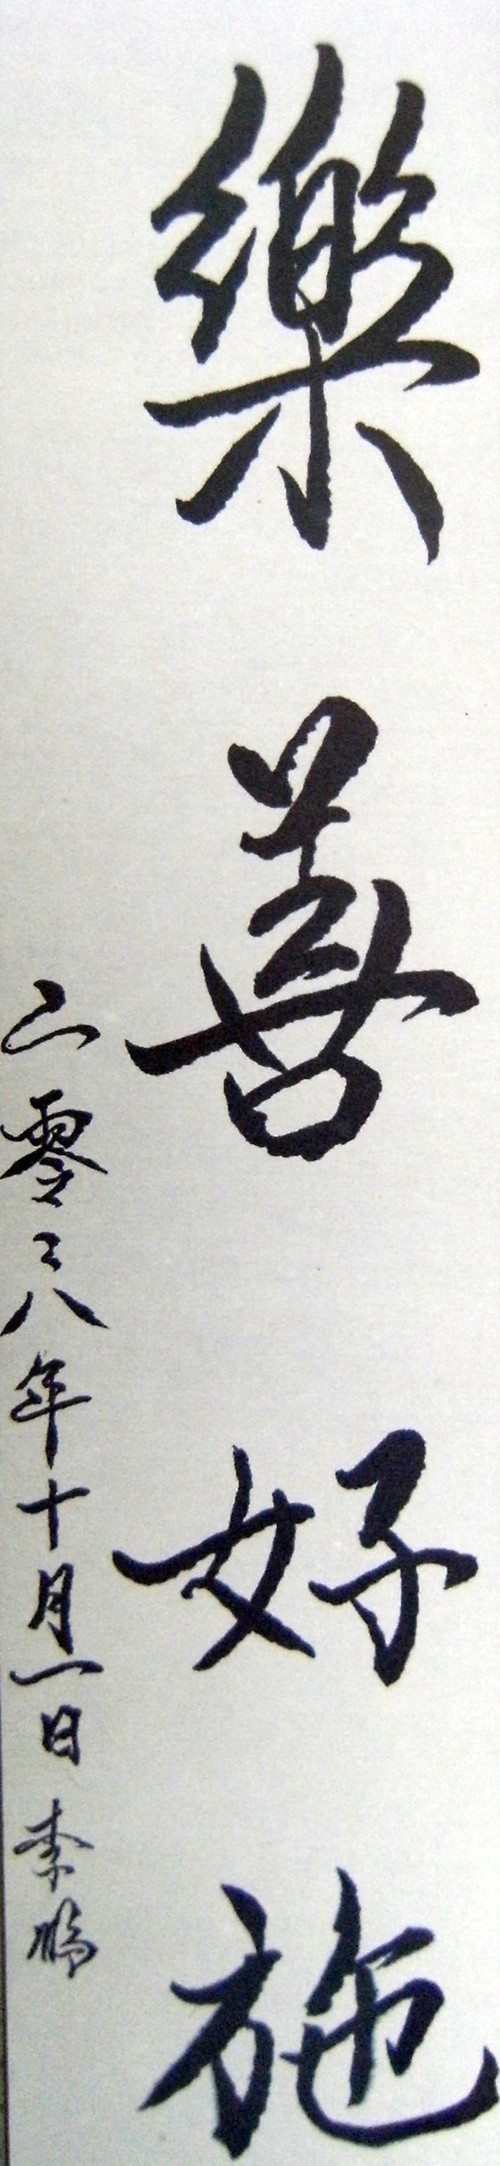 樂善好施
二零零八年十月一日 李鵬